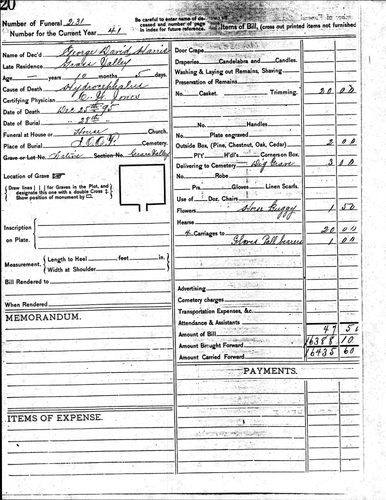 20
Number of Funeral 2131
Number for the Current Year 41
Be careful to enter name of deceased and number of page in index for future reference.
Items of Bill, (cross out printed items not furnished
Name of Dec'd George David Harris
Late Residence Grass Valley
Age — years 10 months 5 days.
Cause of Death Hydrocephalus
Certifying Physician C. W. Jones
Date of Death Dec 25th 95
Date of Burial " 28th "
Funeral at House or House Church.
Place of Burial I.O.O.F. Cemetery.
Grave or Lot No. Native Section No. Grass Valley
Location of Grave
Draw lines | | for Graves in the Plot, and designate this one with a double Cross
Show position of monument by
Inscription on Plate.
Measurement. Length to Heel feet in.
Width at Shoulder
Bill Rendered to
When Rendered
MEMORANDUM.
ITEMS OF EXPENSE.
Door Crape
Draperies Candelabra and Candles.
Washing & Laying out Remains, Shaving
Preservation of Remains
No. Casket. Trimming. 20 00
No. Handles
Plate engraved
Outside Box, (Pine, Chestnut, Oak, Cedar) 2 00
P'lY H'dl's Corners on Box.
Delivering to Cemetery Dig Grave 3 00
No. Robe
Prs. Gloves Linen Scarfs.
Use of Doz. Chairs
Flowers Buggy 1 50
Hearse
4 Carriages to 20 00
Gloves Pall bearers 1 00
Advertising
Cemetery charges
Transportation Expenses, &c.
Attendance & Assistants
Amount of Bill 47 50
Amount Brought Forward 16388 10
Amount Carried Forward 16435 60
PAYMENTS.